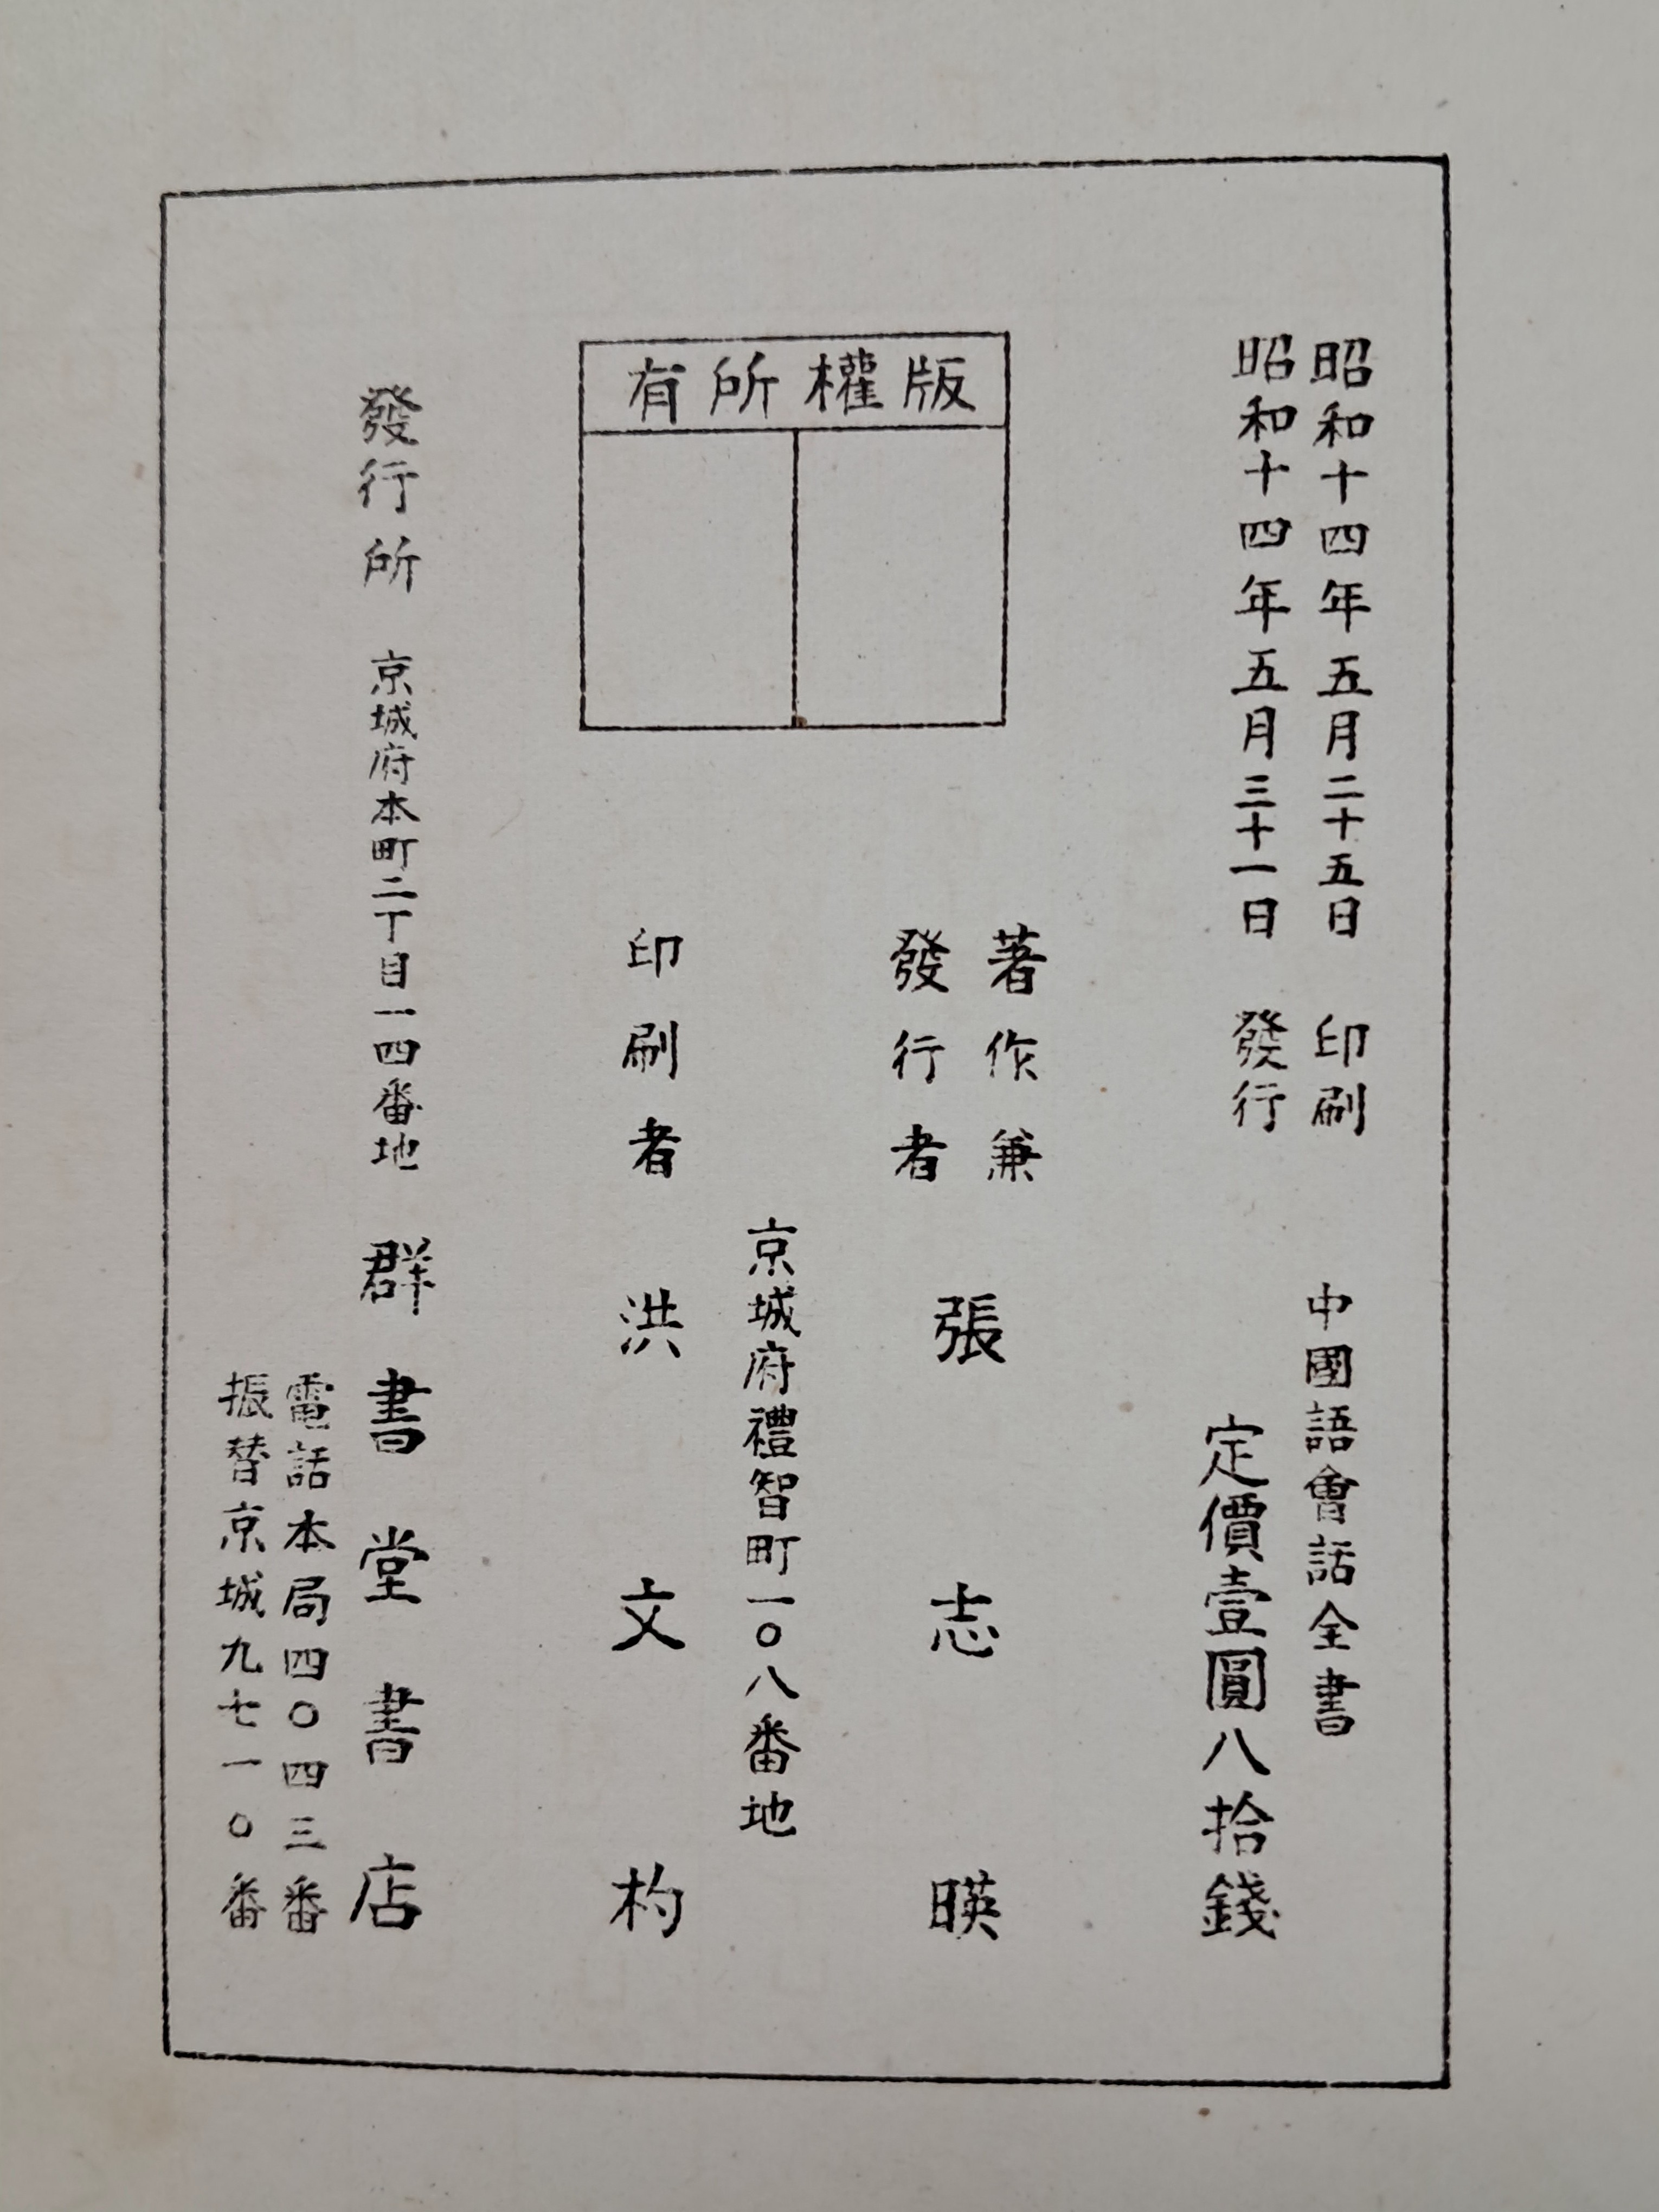 昭和十四年五月二十五日 印刷
昭和十四年五月三十一日 發行
中國語會話全書
定價壹圓八拾錢
版權所有
著作兼
發行者
張志暎
京城府禮智町一〇八番地
印刷者 洪文杓
發行所 京城府本町二丁目一四番地 群書堂書店
電話本局四〇四三番
振替京城九七一〇番